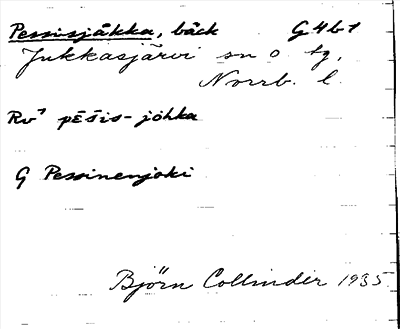 Pessisjåkka, bäck G4b1
Jukkasjärvi sn o tg,
Norrb. l.
Rv⁷ pēšis-johka
G Pessinenjoki
Björn Collinder 1935